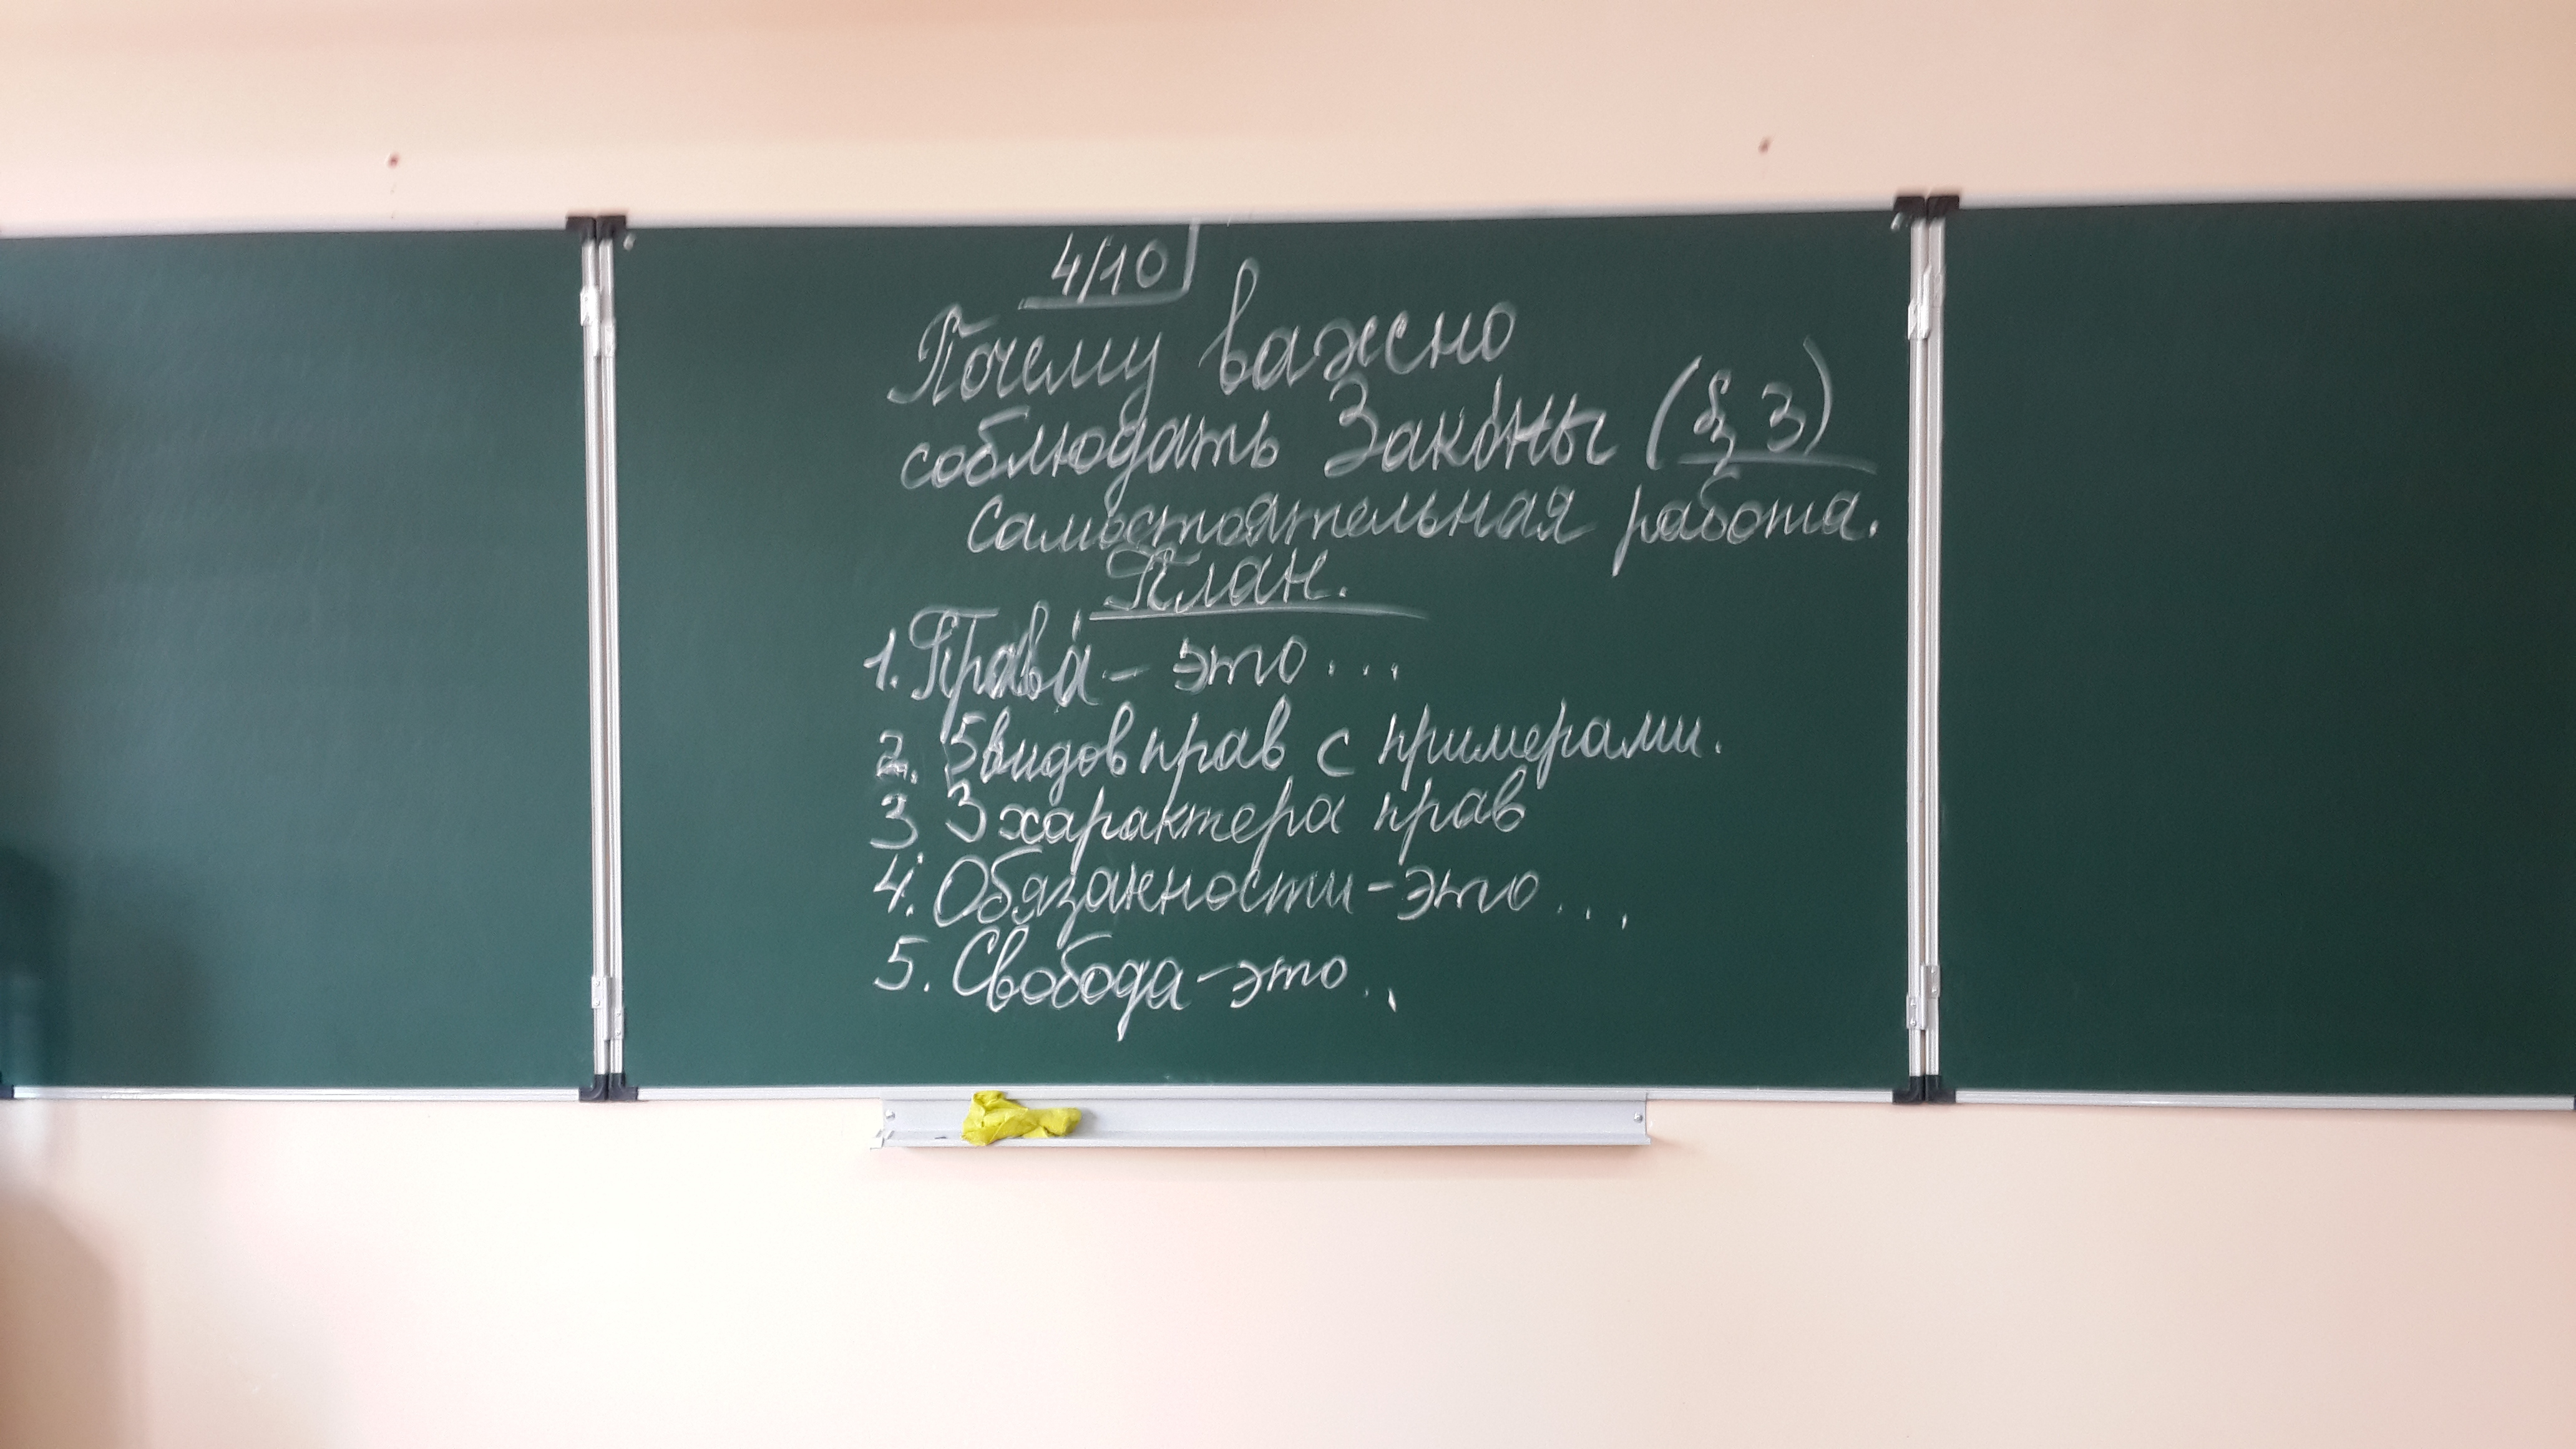 4/10
Почему важно
соблюдать Законы (§ 3)
Самостоятельная работа.
План.
1. Права́ - это...
2. 5 видов прав с примерами.
3 3 характера прав
4. Обязанности - это...
5. Свобода - это..